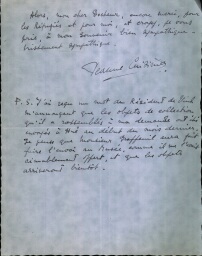 Alors, mon cher Docteur, encore merci, pour
les Réfugiés et pour moi, et croyez, je vous
prie, à mon souvenir bien sympathique.
Jeanne
P. S. J'ai reçu un mot du Résident de
m'annonçant que les objets de collection
qu'il a rassemblés à ma demande ont été
envoyés à Hué au début du mois dernier.
Je pense que Monsieur aura pu
faire l'envoi au Musée, comme il me l'avait
aimablement offert, et que les objets
arriveront bientôt.